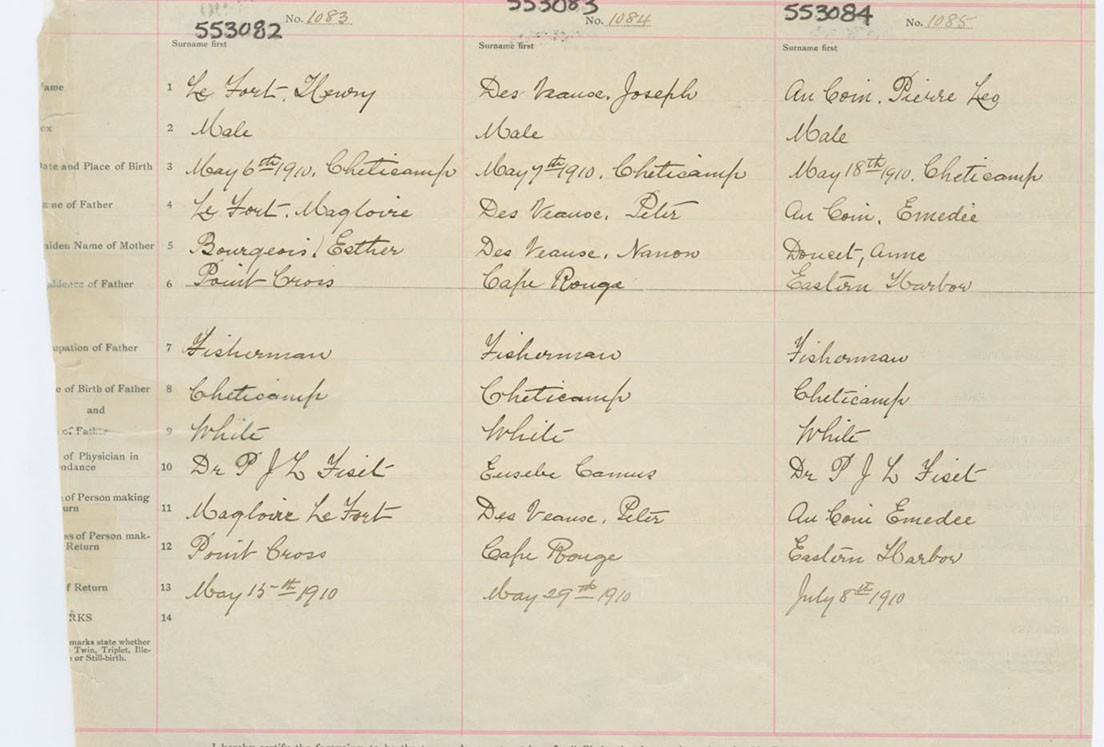 553082 No. 1083
553083 No. 1084
553084 No. 1085
Surname first Surname first Surname first
ame 1 Le Fort, Henry Des Veause, Joseph Au Coin, Pierre Leo
ex 2 Male Male Male
Date and Place of Birth 3 May 6th 1910, Cheticamp May 7th 1910, Cheticamp May 18th 1910, Cheticamp
me of Father 4 Le Fort, Magloire Des Veause, Peter Au Coin, Emedee
aiden Name of Mother 5 Bourgeois, Esther Des Veause, Nanon Doucet, Anne
sidence of Father 6 Point Cross Cape Rouge Eastern Harbor
upation of Father 7 Fisherman Fisherman Fisherman
e of Birth of Father 8 Cheticamp Cheticamp Cheticamp
and
of Father 9 White White White
of Physician in
ndance 10 Dr P J L Fiset Eusebe Camus Dr P J L Fiset
of Person making
urn 11 Magloire Le Fort Des Veause, Peter Au Coin Emedee
ss of Person mak-
Return 12 Point Cross Cape Rouge Eastern Harbor
f Return 13 May 15th 1910 May 29th 1910 July 8th 1910
RKS 14
marks state whether
Twin, Triplet, Ille-
or Still-birth.